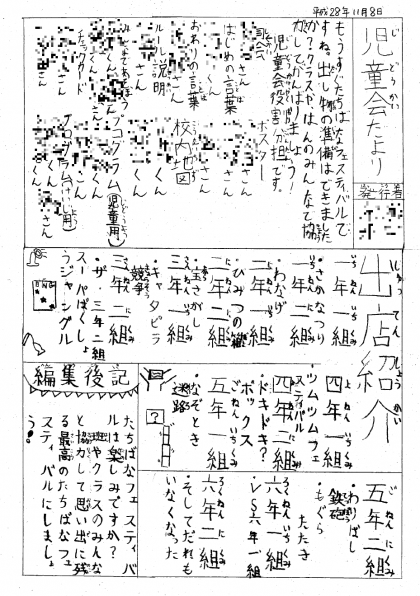 平成28年11月8日
児童会だより
じどうかい
発行者
もうすぐたちばなフェスティバルで
すね。出し物の準備はできました
か?クラスやはんのみんなで協力
してがんばりましょう!
児童会役割分担です。
司会
さん
はじめの言葉
くん
さん
おわりの言葉
さん
ルール説明
さん
くん
くん
くん
チェックカード
さん
くん
ポスター
さん
さん
校内地図
くん
くん
プログラム(児童用)
さん
くん
プログラム
くん
出店紹介
しゅってんしょうかい
一年一組
・さかなつり
一年二組
・わなげ
二年一組
・ひみつの
二年二組
・宝さがし
三年一組
・キャタピラ
競争
三年二組
・ザ・三年二組
スーパーぱくしょ
うジャングル
四年一組
・ツムツムフェ
スティバル
四年二組
・ドキドキ?
ボックス
五年一組
・なぞとき
迷路
五年二組
・わりばし
鉄砲
・もぐら
たたき
六年一組
・シン六年一組
六年二組
・そしてだれも
いなくなった
編集後記
たちばなフェスティバ
ルは楽しみですか?
班やクラスのみんな
と協力して思い出に残
る最高のたちばなフェ
スティバルにしましょ
う!